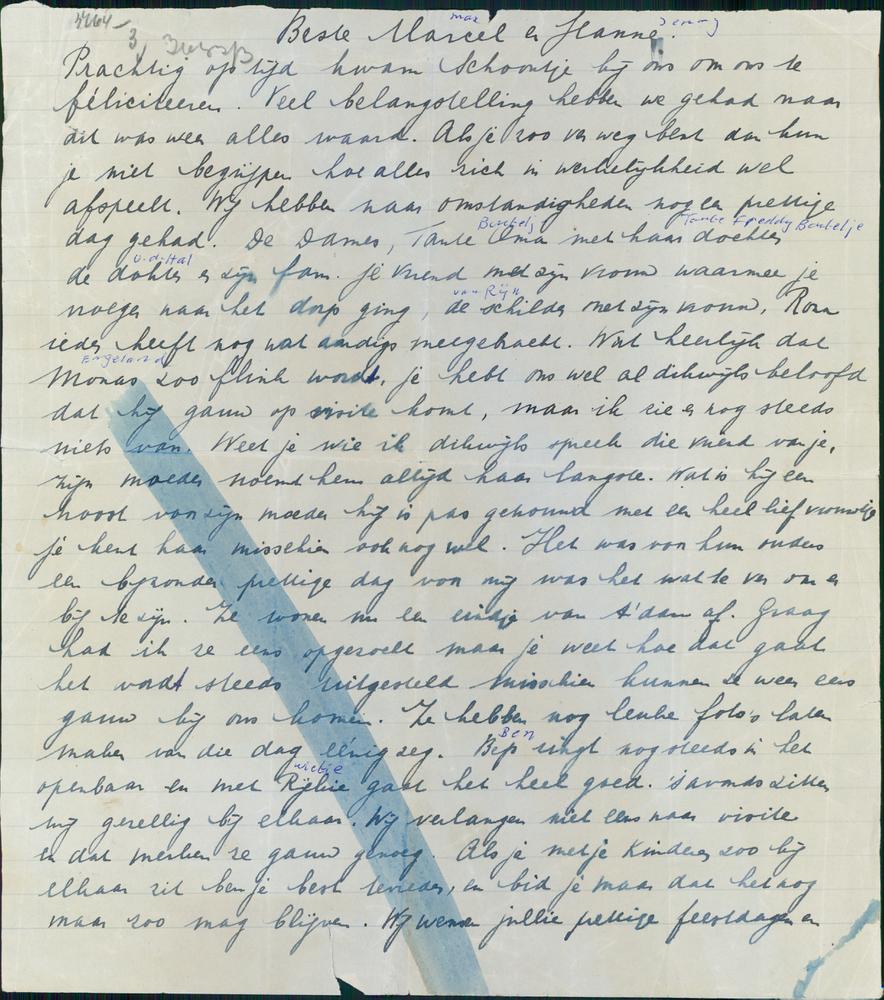 4464-
3
max Jenny
Beste Marcel en Hanne.
Prachtig op tijd kwam Schoontje bij ons om ons te
féliciteeren. Veel belangstelling hebben we gehad maar
dit was weer alles waard. Als je zoo ver weg bent dan kun
je niet begrijpen hoe alles zich in werkelijkheid wel
afspeelt. Wij hebben naar omstandigheden nog een prettige
Beutelj Tante Freddy Beutelje
dag gehad. De Dames, Tante Oma met haar dochter
v.d. Hal
de dokter en zijn fam. je vriend met zijn vrouw waarmee je
van Rijn
vroeger naar het dorp ging, de schilder met zijn vrouw,
ieder heeft nog wat aardigs meegebracht. Wat heerlijk dat
Engeland
Monas zoo flink wordt, je hebt ons wel al dikwijls beloofd
dat hij gauw op visite komt, maar ik zie er nog steeds
niets van. Weet je wie ik dikwijls spreek die vriend van je,
zijn moeder noemd hem altijd haar langste. Wat is hij een
soort van zijn moeder hij is pas getrouwd met een heel lief vrouwtje
je kent haar misschien ook nog wel. Het was voor hun ouders
een bijzonder prettige dag voor mij was het wat te ver om er
bij te zijn. Ze wonen nu een eindje van A'dam af. Graag
had ik ze eens opgezocht maar je weet hoe dat gaat
het wordt steeds uitgesteld misschien kunnen ze weer eens
gauw bij ons komen. Ze hebben nog leuke foto's laten
Ben
maken van die dag éénig zeg. Bep zingt nog steeds in het
wietje
openbaar en met Rijkie gaat het heel goed. 's avonds zitten
wij gezellig bij elkaar. Wij verlangen niet eens naar visite
en dat merken ze gauw genoeg. Als je met je Kinderen zoo bij
elkaar zit ben je best tevreden, en bid je maar dat het nog
maar zoo mag blijven. Wij wensen jullie prettige feestdagen en